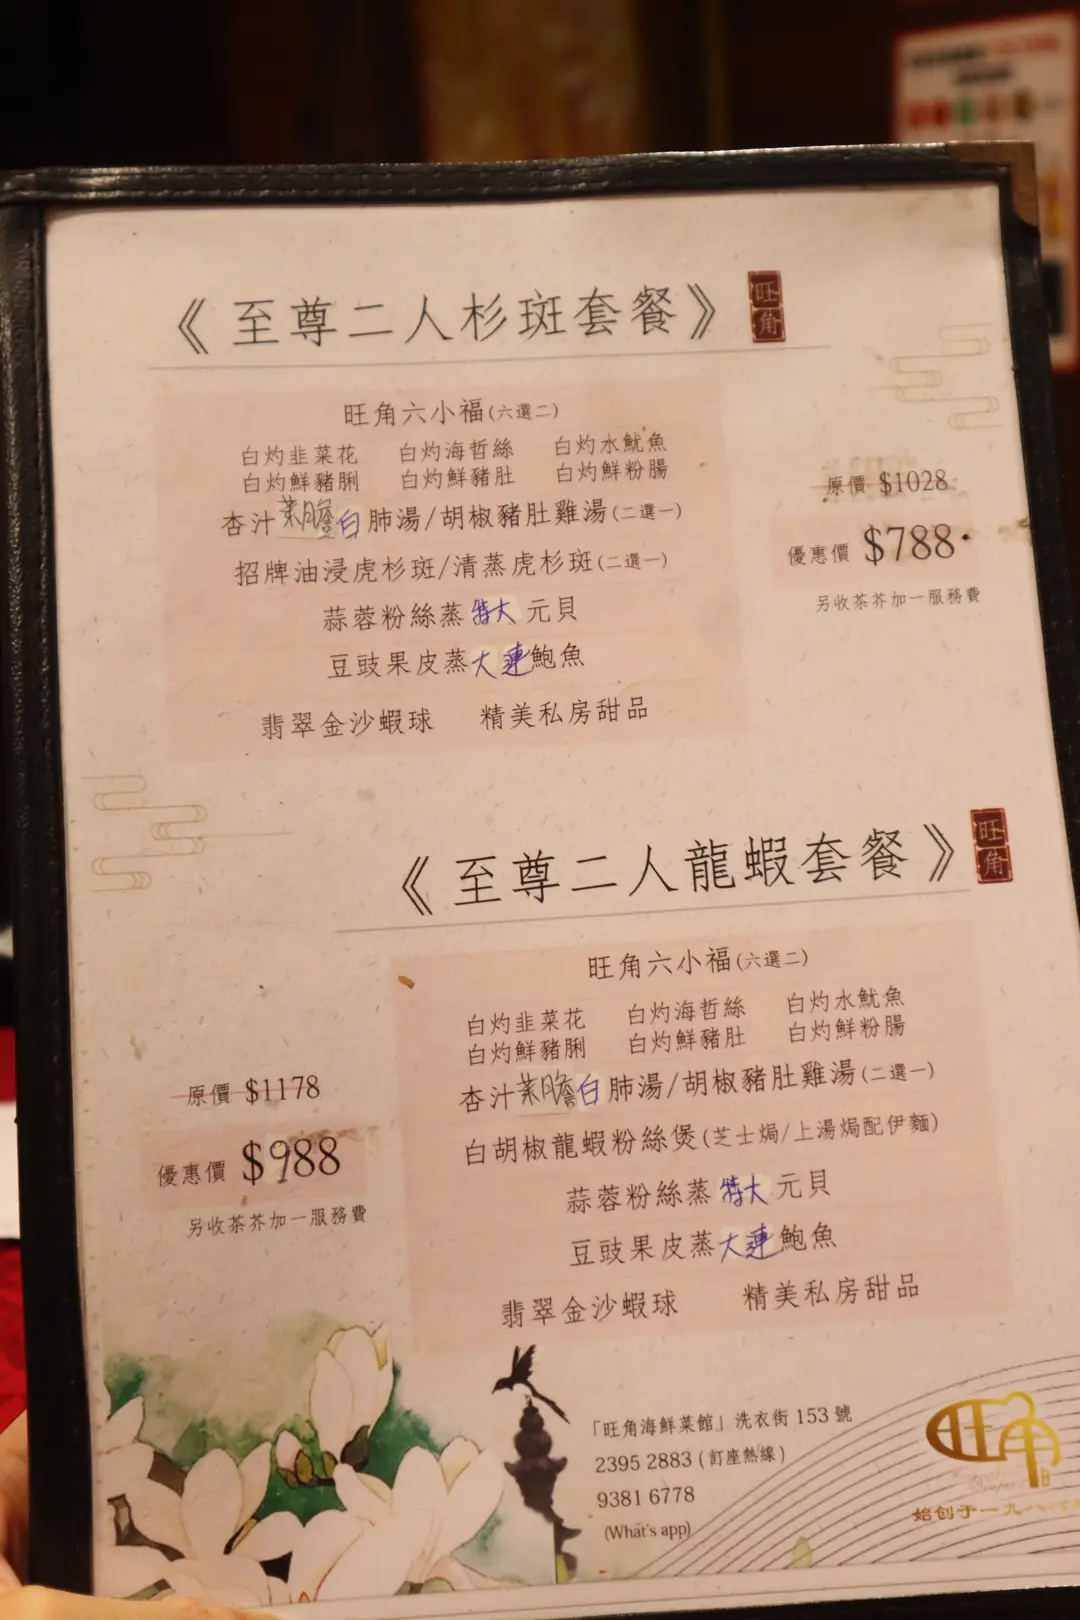 《至尊二人杉斑套餐》
旺角
旺角六小福(六選二)
白灼韭菜花 白灼海哲絲 白灼水魷魚
白灼鮮豬脷 白灼鮮豬肚 白灼鮮粉腸
杏汁菜膽白肺湯/胡椒豬肚雞湯(二選一)
招牌油浸虎杉斑/清蒸虎杉斑(二選一)
蒜蓉粉絲蒸特大元貝
豆豉果皮蒸大連鮑魚
翡翠金沙蝦球 精美私房甜品
原價 $1028
優惠價 $788
另收茶芥加一服務費
《至尊二人龍蝦套餐》
旺角
旺角六小福(六選二)
白灼韭菜花 白灼海哲絲 白灼水魷魚
白灼鮮豬脷 白灼鮮豬肚 白灼鮮粉腸
杏汁菜膽白肺湯/胡椒豬肚雞湯(二選一)
白胡椒龍蝦粉絲煲(芝士焗/上湯焗配伊麵)
蒜蓉粉絲蒸特大元貝
豆豉果皮蒸大連鮑魚
翡翠金沙蝦球 精美私房甜品
原價 $1178
優惠價 $988
另收茶芥加一服務費
「旺角海鮮菜館」洗衣街 153 號
2395 2883 (訂座熱線)
9381 6778
(What's app)
旺角
始创于一九八